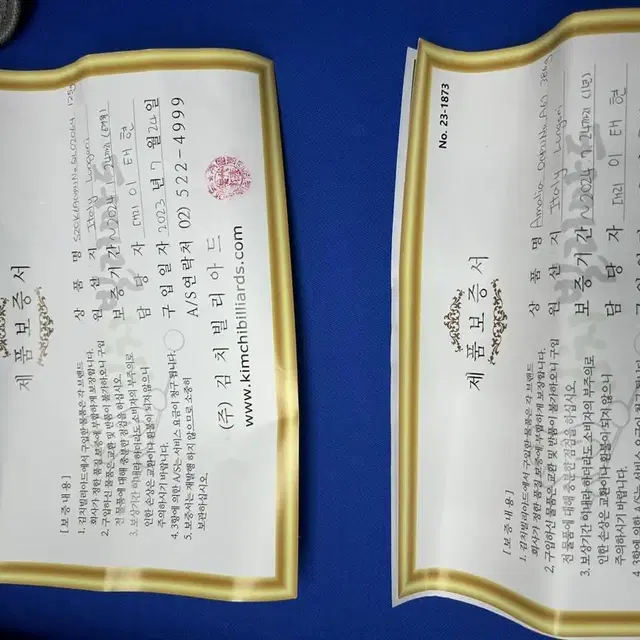 제 품 보 증 서
상 품 명
원 산 지 Italy Longoni
보 증 기 간 ~ 2024
담 당 자 대리 이 태 현
구 입 일 자 2023 년 7 월 24 일
A/S연락처 02) 522-4999
[보 증 내 용]
1. 김치빌리아드에서 구입한 물품은 각 브랜드
회사가 정한 품질 보증에 부합하게 보장합니다.
2. 구입하신 물품은 교환 및 반품이 불가하오니 구입
전 물품에 대해 충분한 점검을 하십시오.
3. 보상기간 이내라 하더라도 소비자의 부주의로
인한 손상은 교환이나 환불이 되지 않으니
주의하시기 바랍니다.
4. 3항에 의한 A/S는 서비스 요금이 청구됩니다.
5. 보증서는 재발행 하지 않으므로 소중히
보관하십시오.
(주) 김 치 빌 리 아 드
www.kimchibilliards.com
No. 23-1873
제 품 보 증 서
상 품 명
원 산 지 Italy Longoni
보 증 기 간 ~ 2024 7. 24까지 (1년)
담 당 자 대리 이 태 현
[보 증 내 용]
1. 김치빌리아드에서 구입한 물품은 각 브랜드
회사가 정한 품질 보증에 부합하게 보장합니다.
2. 구입하신 물품은 교환 및 반품이 불가하오니 구입
전 물품에 대해 충분한 점검을 하십시오.
3. 보상기간 이내라 하더라도 소비자의 부주의로
인한 손상은 교환이나 환불이 되지 않으니
주의하시기 바랍니다.
4. 3항에 의한 A/S는 서비스 요금이